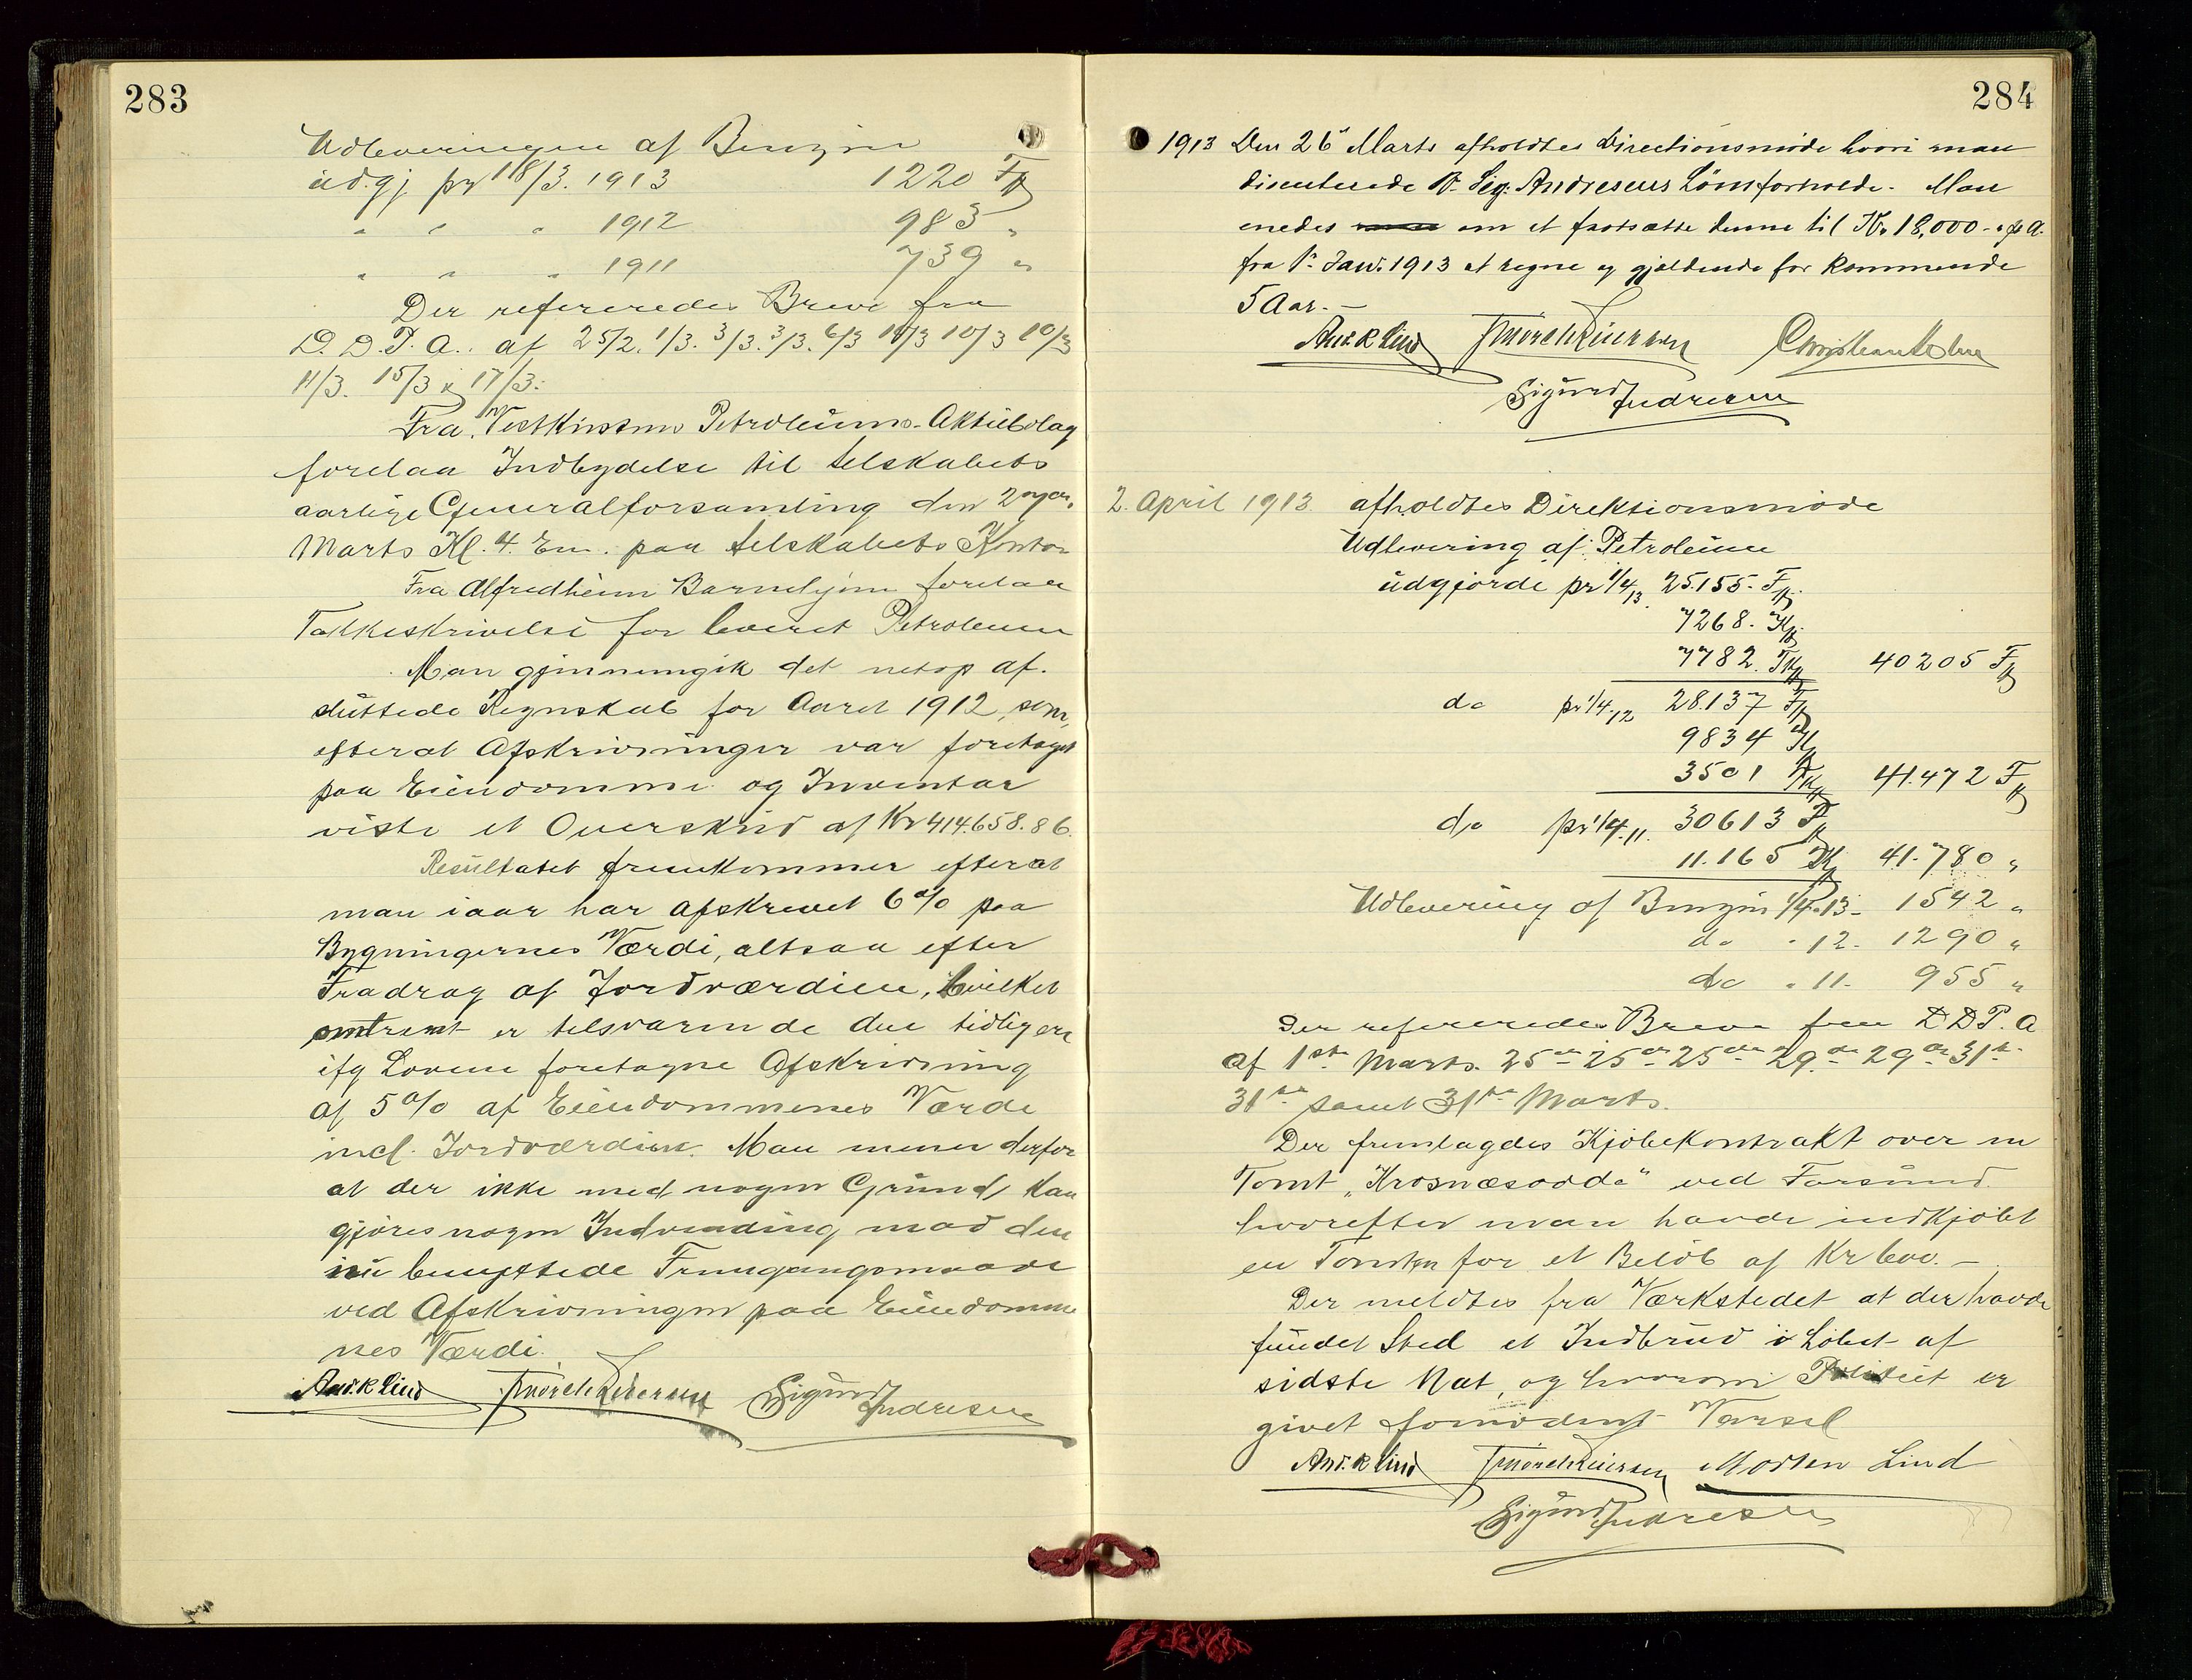 283
Udleveringen af Benzin
udgj pr 18/3. 1913 1220 Fp
" " " 1912 983 "
" " " 1911 739 "
Der refereredes Breve fra
D. D. P. A. af 25/2. 1/3. 3/3. 3/3. 6/3 10/3 10/3 10/3
11/3. 15/3 & 17/3.
Fra Vestkustens Petroleums-Aktiebolag
forelaa Indbydelse til Selskabets
aarlige Generalforsamling den
Marts Kl. 4. Em. paa Selskabets Kontor
Fra Alfredheim Barnehjem forelaa
Takkeskrivelse for leveret Petroleum
Man gjennemgik det netop af-
sluttede Regnskab for Aaret 1912, som,
efterat Afskrivninger var foretaget
paa Eiendomme og Inventar
viste et Overskud af Kr 414.658.86.
Resultatet fremkommer efterat
man iaar har afskrevet 6% paa
Bygningernes Værdi, altsaa efter
Fradrag af Jordværdien, hvilket
omtrent er tilsvarende den tidligere
ifg Lovene foretagne Afskrivning
af 5% af Eiendommenes Værdi
incl. Jordværdien. Man mener derfor
at der ikke med nogen Grund kan
gjøres nogen Indvending mod den
nu benyttede Fremgangsmaade
ved Afskrivningen paa Eiendomme
nes Værdi.
And. K Lind Sigurd Andresen
284
1913 Den 26 Marts afholdtes Directionsmøde hvori man
discuterede Hr. Sig. Andresens Lønsforholde. Man
enedes om at fastsætte denne til Kr. 18,000 - p. A.
fra 1. Jan. 1913 at regne og gjældende for kommende
5 Aar. -
And. K Lind Christian Holm
Sigurd Andresen
2. April 1913. afholdtes Direktionsmøde
Udlevering af Petroleum
udgjorde pr 1/4 13. 25.155. Fp.
7268. Kp.
7782. TKp 40205 Fp
do pr 1/4.12 28.137 Fp
9834 Kp
3501 TKp 41.472 Fp
do pr 1/4.11. 30613 Fp
11.165 Kp 41.780 "
Udlevering af Benzin 1/4.13 - 1542 "
do " 12 - 1290 "
do " 11 - 955 "
Der refereredes Breve fra D D P. A
af 1ste Marts. 25de 25de 25de 29de 29de 31te
31te samt 31te Marts.
Der fremlagdes Kjøbekontrakt over en
Tomt „Krosnæsodde" ved Farsund.
hvorefter man havde indkjøbt
en Tomten for et Beløb af Kr 600. -
Der meldtes fra Værkstedet at der havde
fundet Sted et Indbrud i Løbet af
sidste Nat, og hvorom Politiet er
givet fornødent Varsel
And. K Lind Morten Lind
Sigurd Andresen